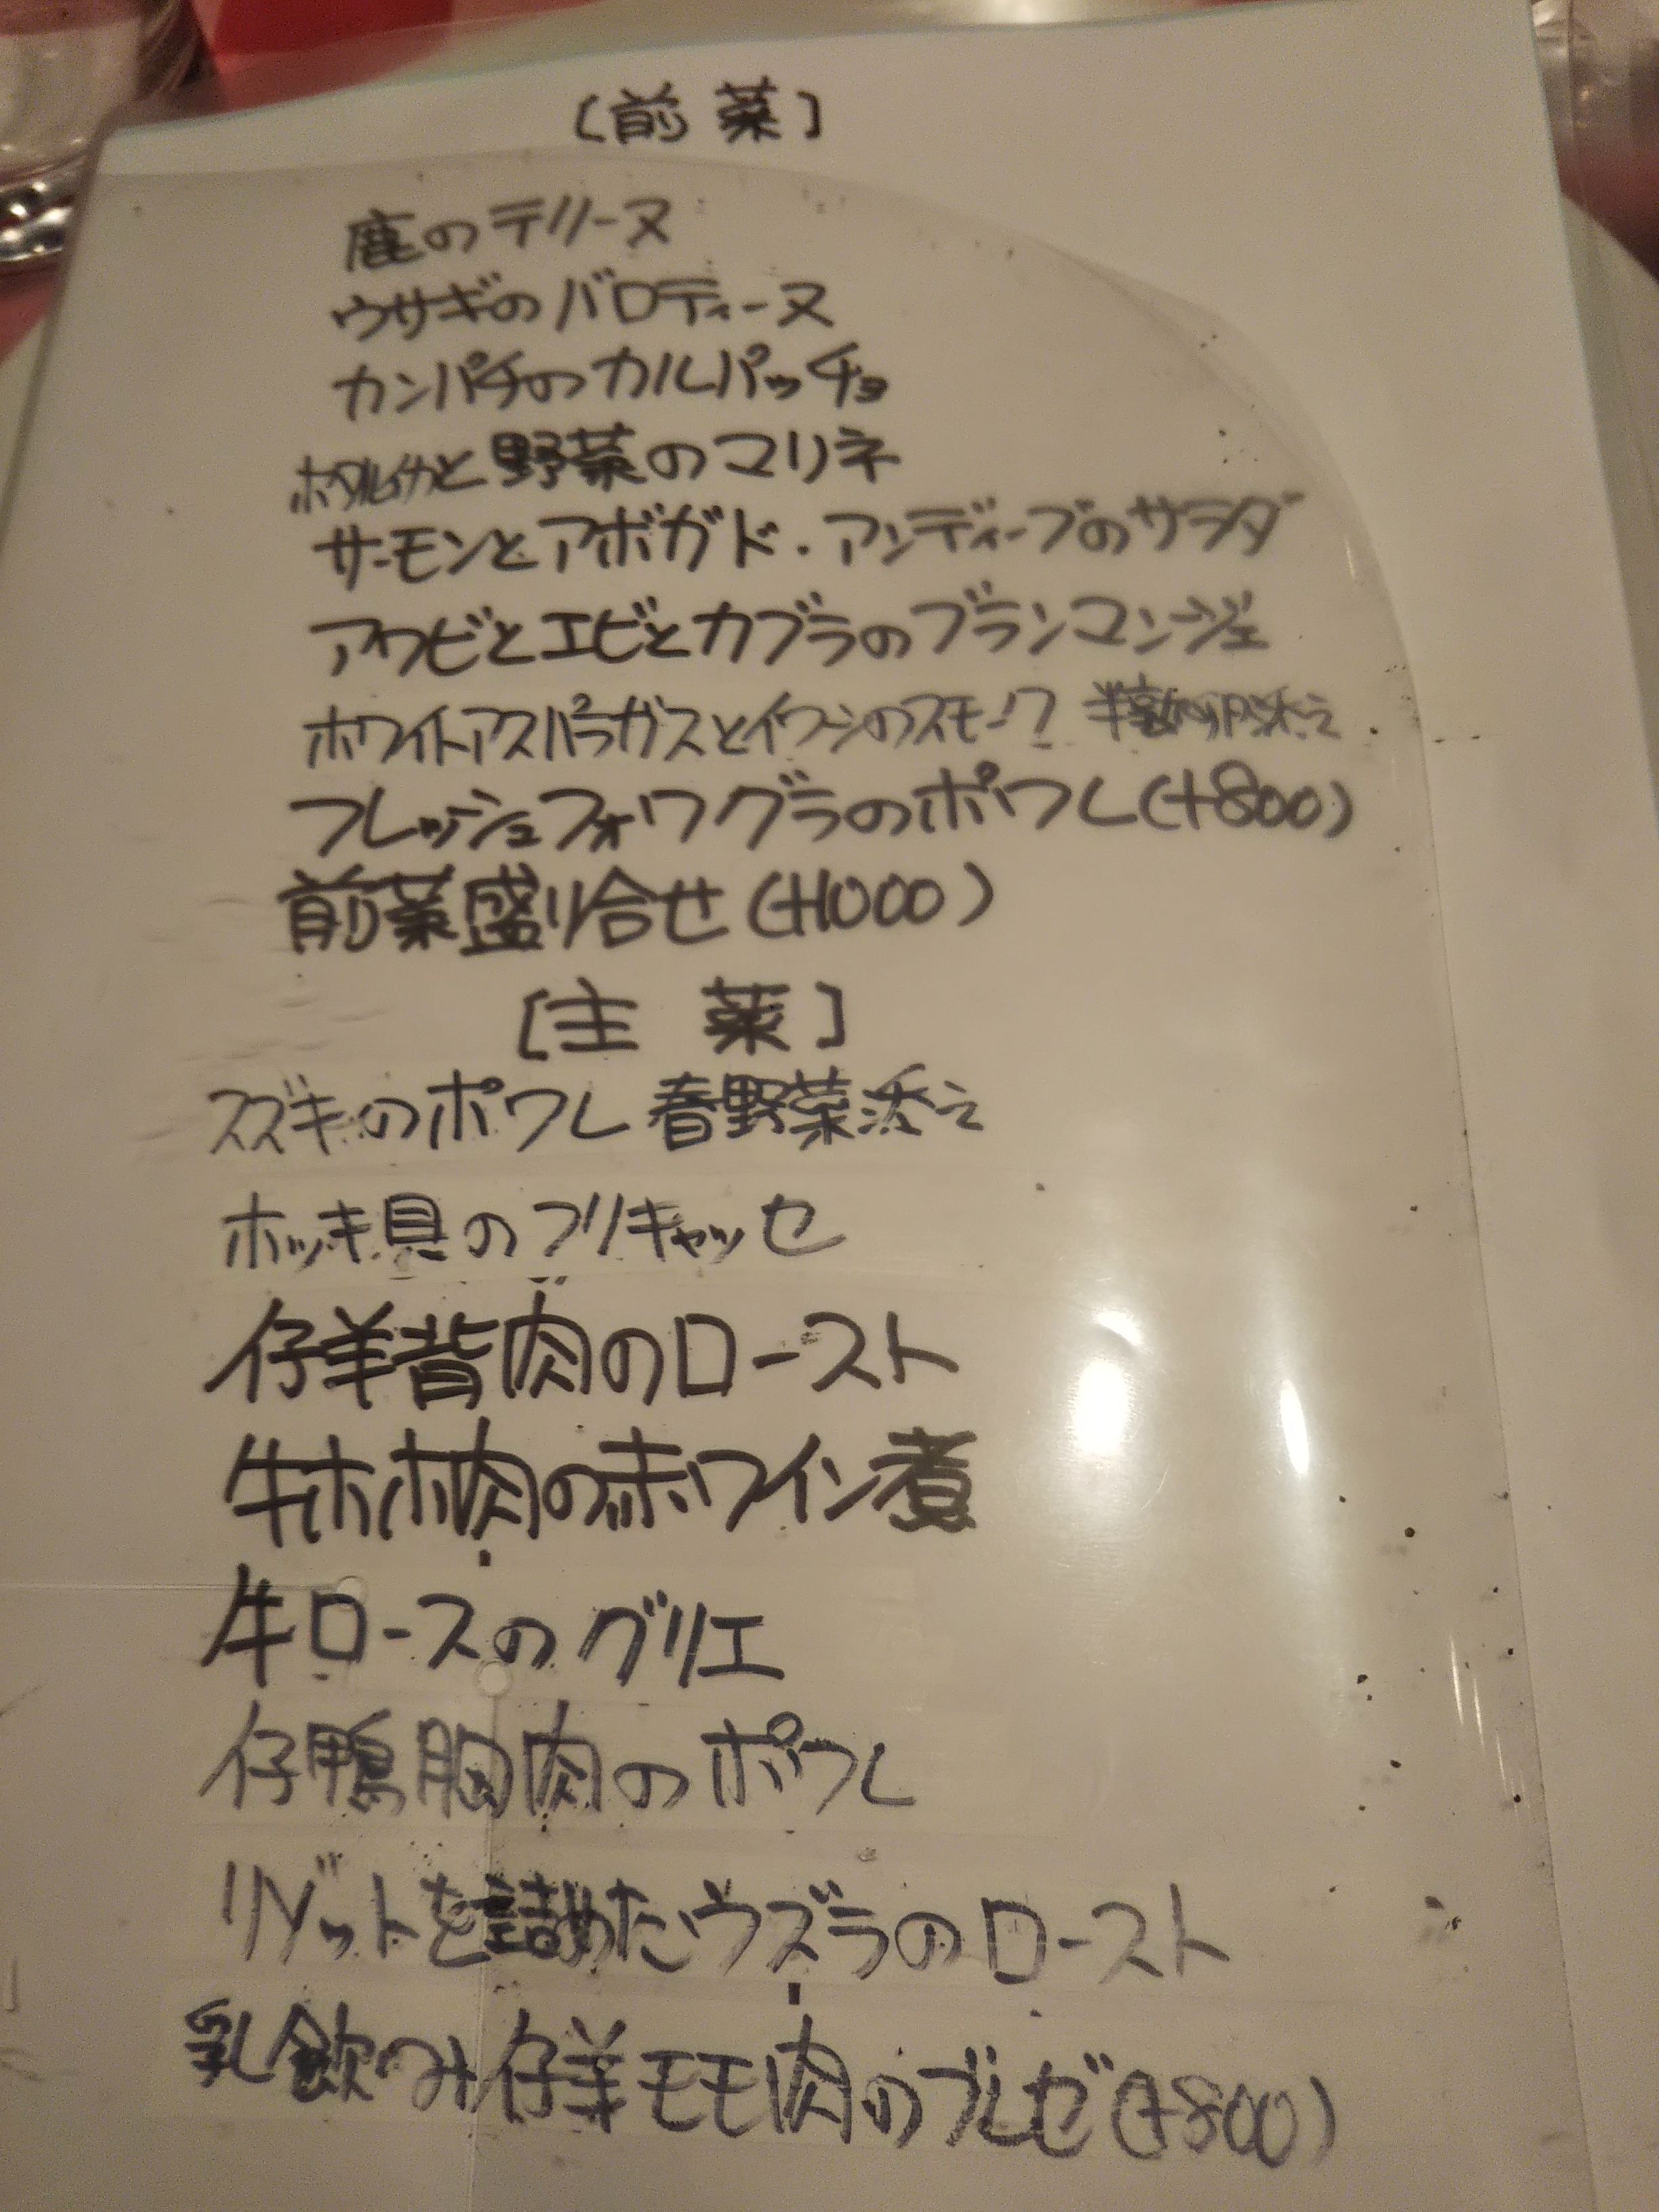 [前菜]
鹿のテリーヌ
ウサギのバロティーヌ
カンパチのカルパッチョ
ホタルイカと野菜のマリネ
サーモンとアボガド・アンディーブのサラダ
アワビとエビとカブラのブランマンジェ
ホワイトアスパラガスとイワシのスモーク 半熟卵添え
フレッシュフォワグラのポワレ(+800)
前菜盛り合せ(+1000)
[主菜]
スズキのポワレ 春野菜添え
ホッキ貝のフリキャッセ
仔羊背肉のロースト
牛ホホ肉の赤ワイン煮
牛ロースのグリエ
仔鴨胸肉のポワレ
リゾットを詰めたウズラのロースト
乳飲み仔羊モモ肉のブレゼ(+800)